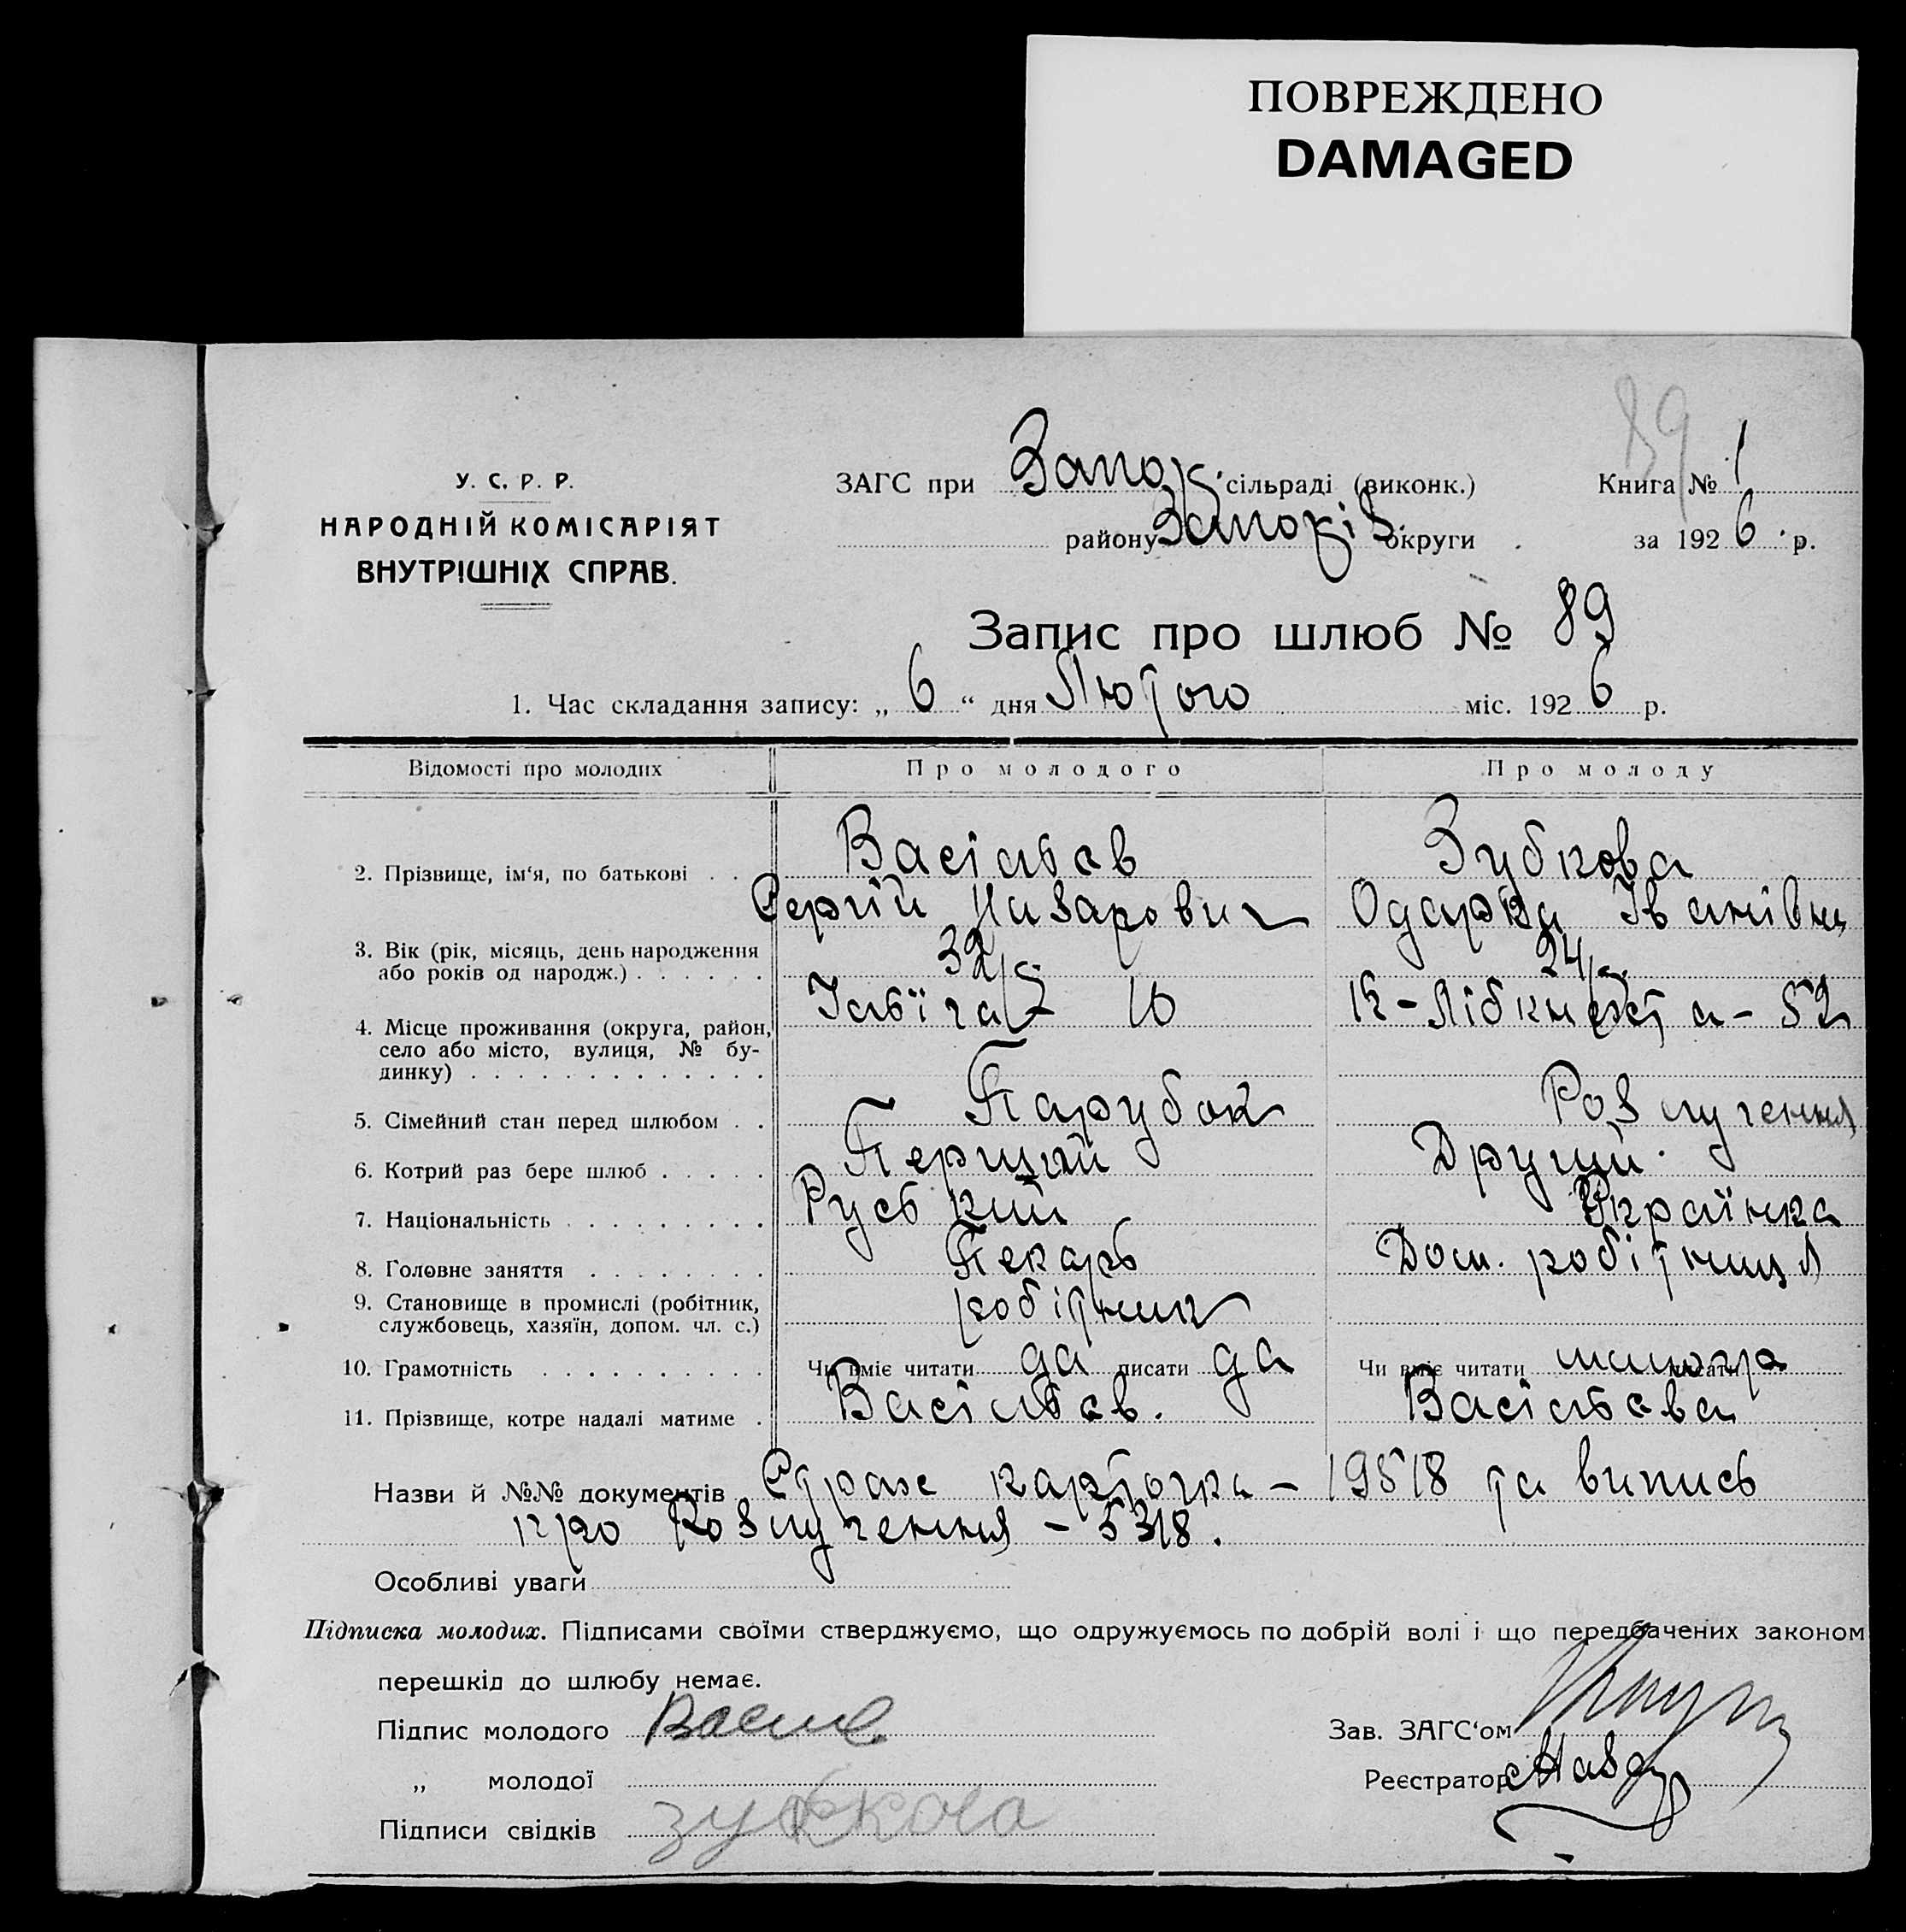 ПОВРЕЖДЕНО
DAMAGED
89
У. С. Р. Р.
НАРОДНІЙ КОМІСАРІЯТ
ВНУТРІШНІХ СПРАВ.
ЗАГС при Запож. сільраді (виконк.) Книга № 1
району Запоріз. округи за 1926 р.
Запис про шлюб № 89
1. Час складання запису: „ 6 “ дня Лютого міс. 1926 р.
Відомості про молодих Про молодого Про молоду
2. Прізвище, ім‘я, по батькові . . Васільєв Зубкова
Сергій Назарович Одарка Іванівна
3. Вік (рік, місяць, день народження 32 24
або років од народж.) . . . . . .
4. Місце проживання (округа, район, 10 К-Лібкнехта - 52
село або місто, вулиця, № бу-
динку) . . . . . . . . . . . . .
5. Сімейний стан перед шлюбом . . Парубок Розлучення
6. Котрий раз бере шлюб . . . . . Перший Другий.
7. Національність . . . . . . . . . Руський Українка
8. Головне заняття . . . . . . . . Пекарь Дом. робітниця
9. Становище в промислі (робітник, робітник
службовець, хазяїн, допом. чл. с.)
10. Грамотність . . . . . . . . . . Чи вміє читати да писати да Чи вміє читати писати
11. Прізвище, котре надалі матиме . Васільєв. Васільєва
Назви й №№ документів Страх карточка - 19518 та випись
про Розлучення - 5318.
Особливі уваги
Підписка молодих. Підписами своїми стверджуємо, що одружуємось по добрій волі і що передбачених законом
перешкід до шлюбу немає.
Підпис молодого Васил
Зав. ЗАГС‘ом
„ молодої
Реєстратор
Підписи свідків зубкова